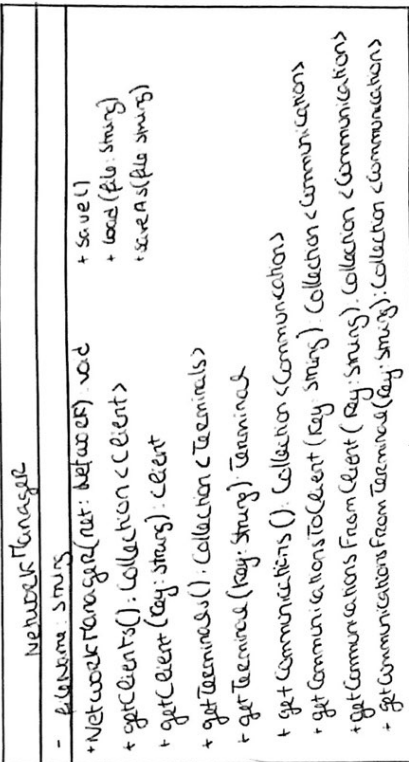 NetworkManager
- fileName: String
+ NetworkManager(net: Network): void
+ getClients(): Collection<Client>
+ getClient(Key: String): Client
+ getTerminals(): Collection<Terminals>
+ getTerminal(Key: String): Terminal
+ getCommunications(): Collection<Communications>
+ getCommunicationsToClient(Key: String): Collection<Communications
+ getCommunicationsFromClient(Key: String): Collection<Communications
+ getCommunicationsFromTerminal(Key: String): Collection<Communications
+ save()
+ load(file: String)
+ saveAs(file: String)